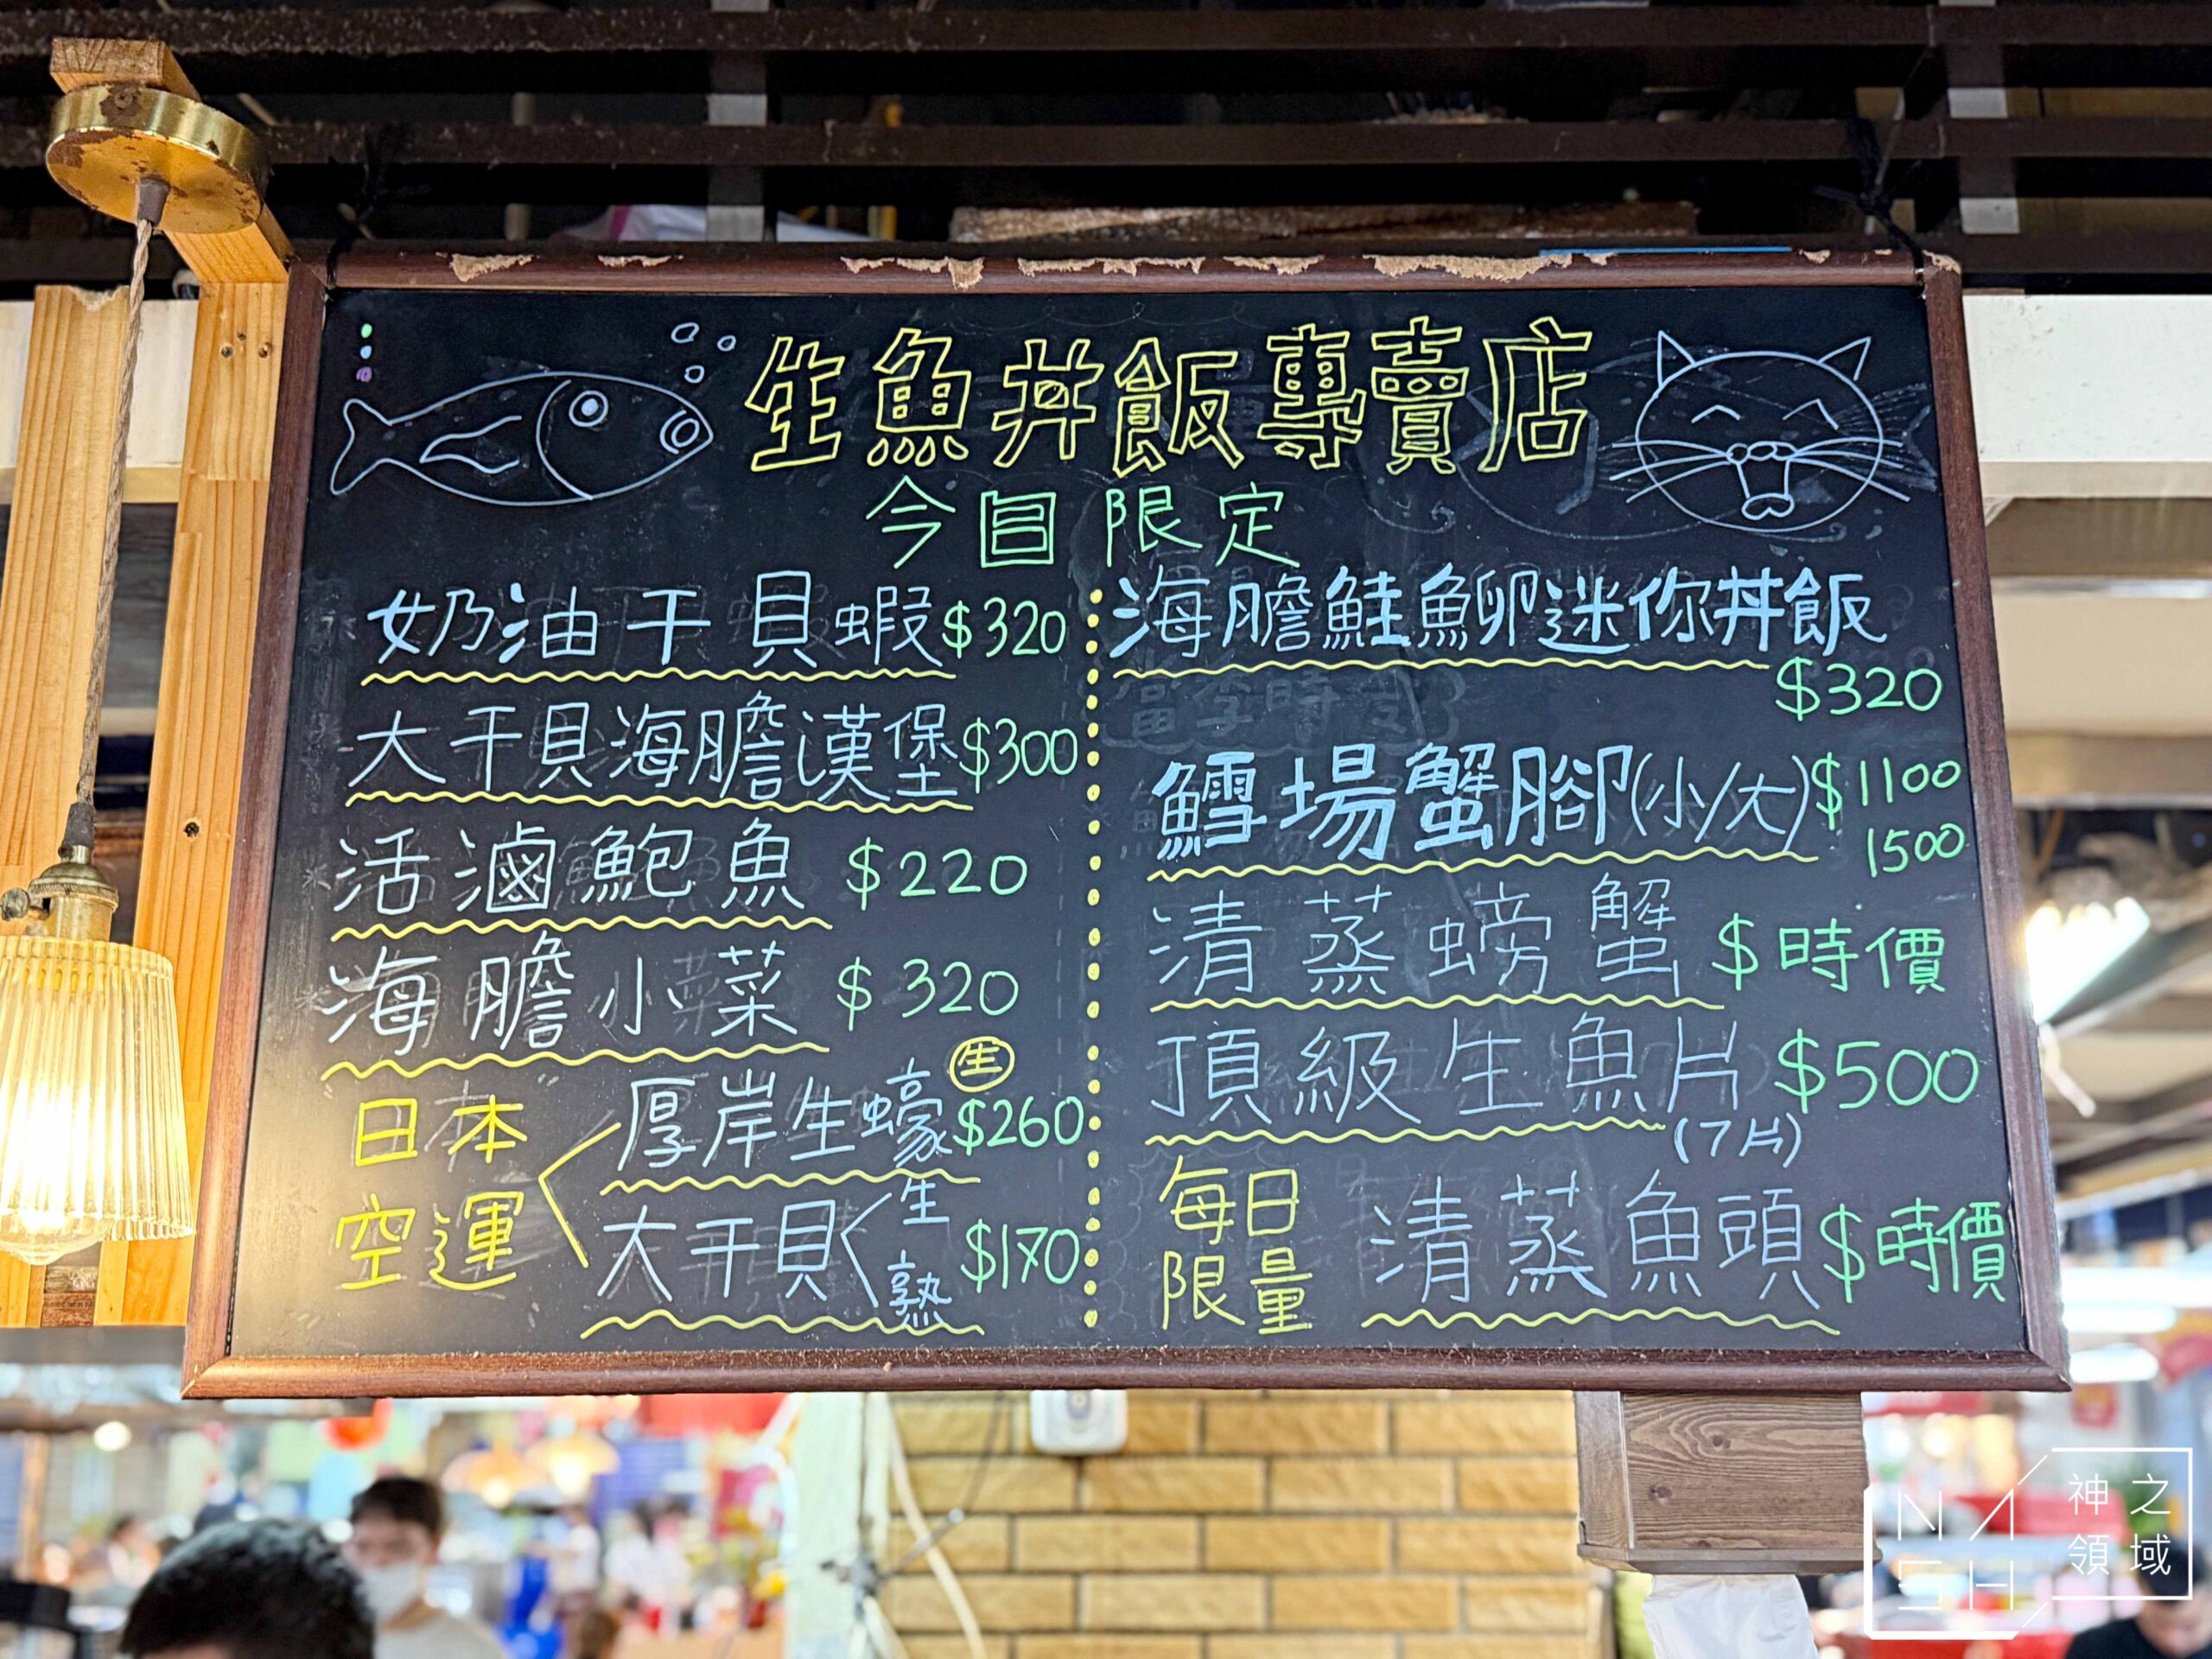 生魚丼飯專賣店
今日限定
奶油干貝蝦$320
大干貝海膽漢堡$300
活滷鮑魚 $220
海膽小菜 $320
日本
空運
生
厚岸生蠔$260
大干貝 生
熟 $170
海膽鮭魚卵迷你丼飯
$320
鱈場蟹腳(小/大)$1100
1500
清蒸螃蟹 $時價
頂級生魚片 $500
(7片)
每日
限量
清蒸魚頭 $時價
NASH
神之
領域